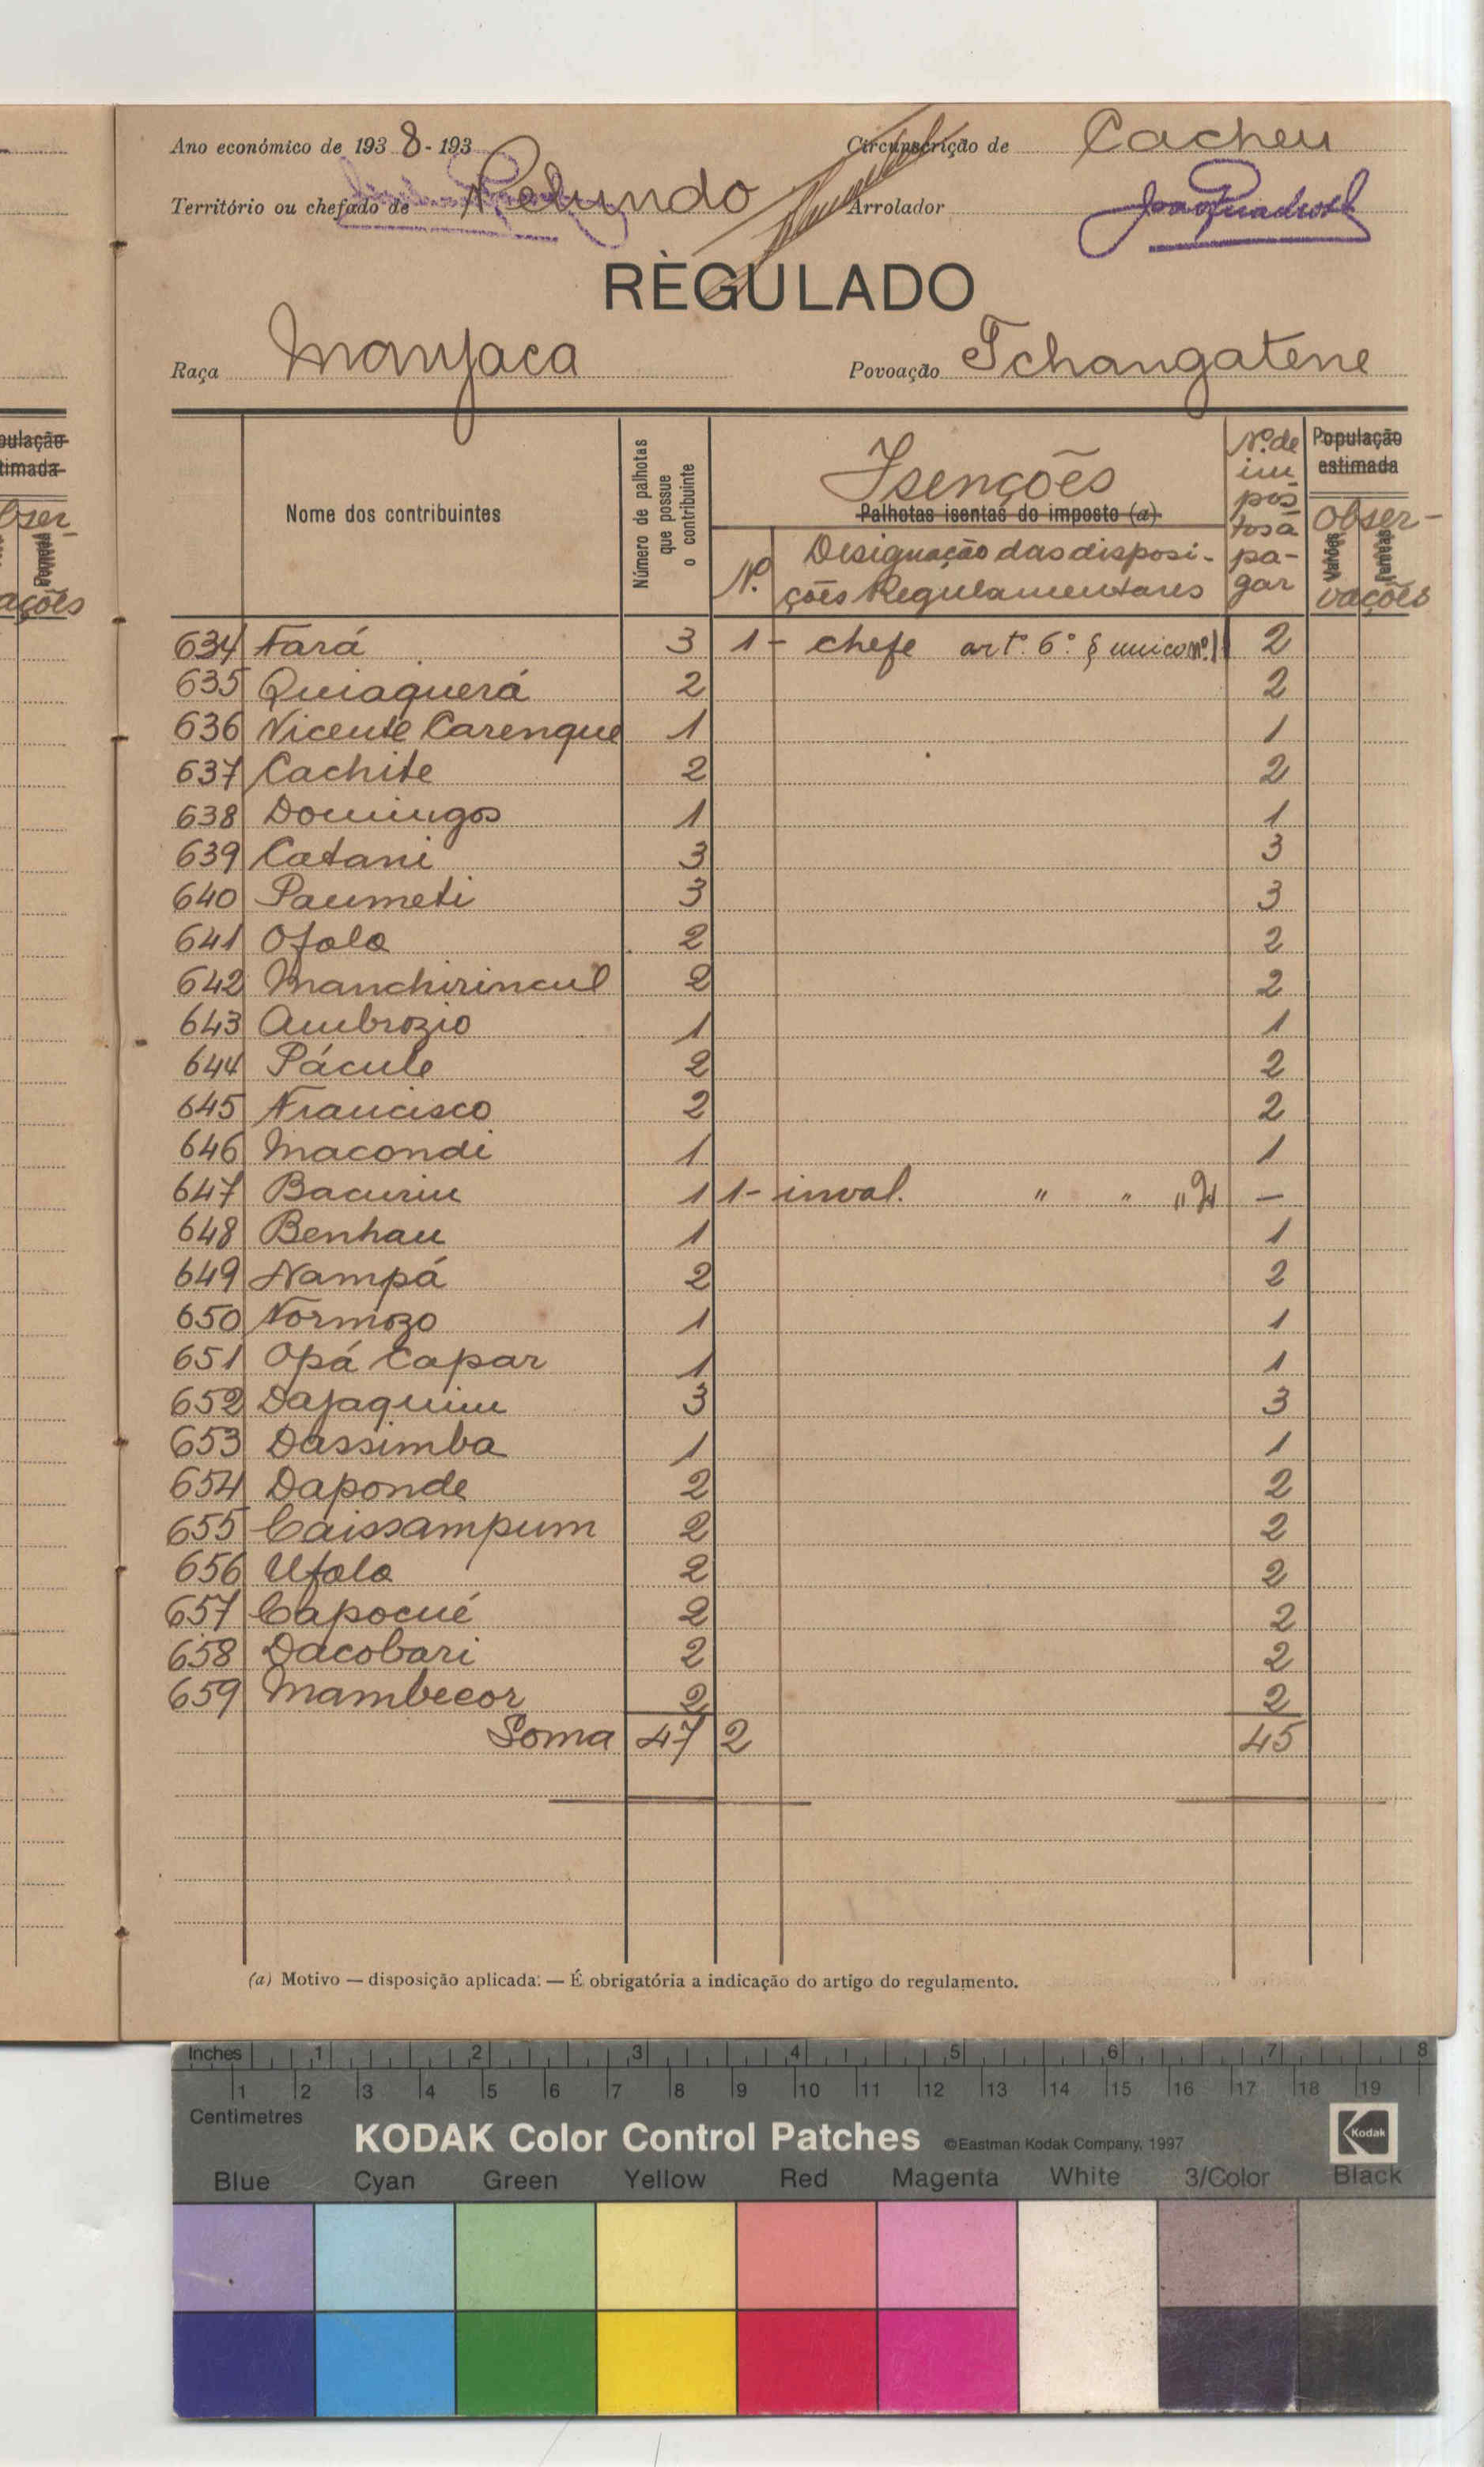 Ano económico de 1938-193
Circunscrição de Cacheu
Território ou chefado de Pelundo
Arrolador
RÈGULADO
Raça Manjaca
Povoação Tchangatene
Nome dos contribuintes
Número de palhotas que possue o contribuinte
Isenções
Palhotas isentas do imposto (a)
Nº
Designação das disposi-
ções Regulamentares
Nº. de im postos a pa-gar
População estimada
Obser-vações
634 Fará 3 1 - chefe artº. 6º. § unico nº. 1 2
635 Quiaquerá 2 2
636 Vicente Carenque 1 1
637 Cachite 2 2
638 Domingos 1 1
639 Catani 3 3
640 Paumeti 3 3
641 Ofolo 2 2
642 Manchirincul 2 2
643 Ambrozio 1 1
644 Pácule 2 2
645 Francisco 2 2
646 Macondi 1 1
647 Bacurim 1 1 - inval. " " " 2 —
648 Benhau 1 1
649 Nampá 2 2
650 Normozo 1 1
651 Opá Capar 1 1
652 Dajaquim 3 3
653 Dassimba 1 1
654 Daponde 2 2
655 Caissampum 2 2
656 Ufolo 2 2
657 Capocué 2 2
658 Dacobari 2 2
659 Mambecor 2 2
Soma 47 2 45
(a) Motivo — disposição aplicada: — É obrigatória a indicação do artigo do regulamento.
Inches 1 2 3 4 5 6 7 8
1 2 3 4 5 6 7 8 9 10 11 12 13 14 15 16 17 18 19
Centimetres
KODAK Color Control Patches ©Eastman Kodak Company, 1997 Kodak
Blue Cyan Green Yellow Red Magenta White 3/Color Black